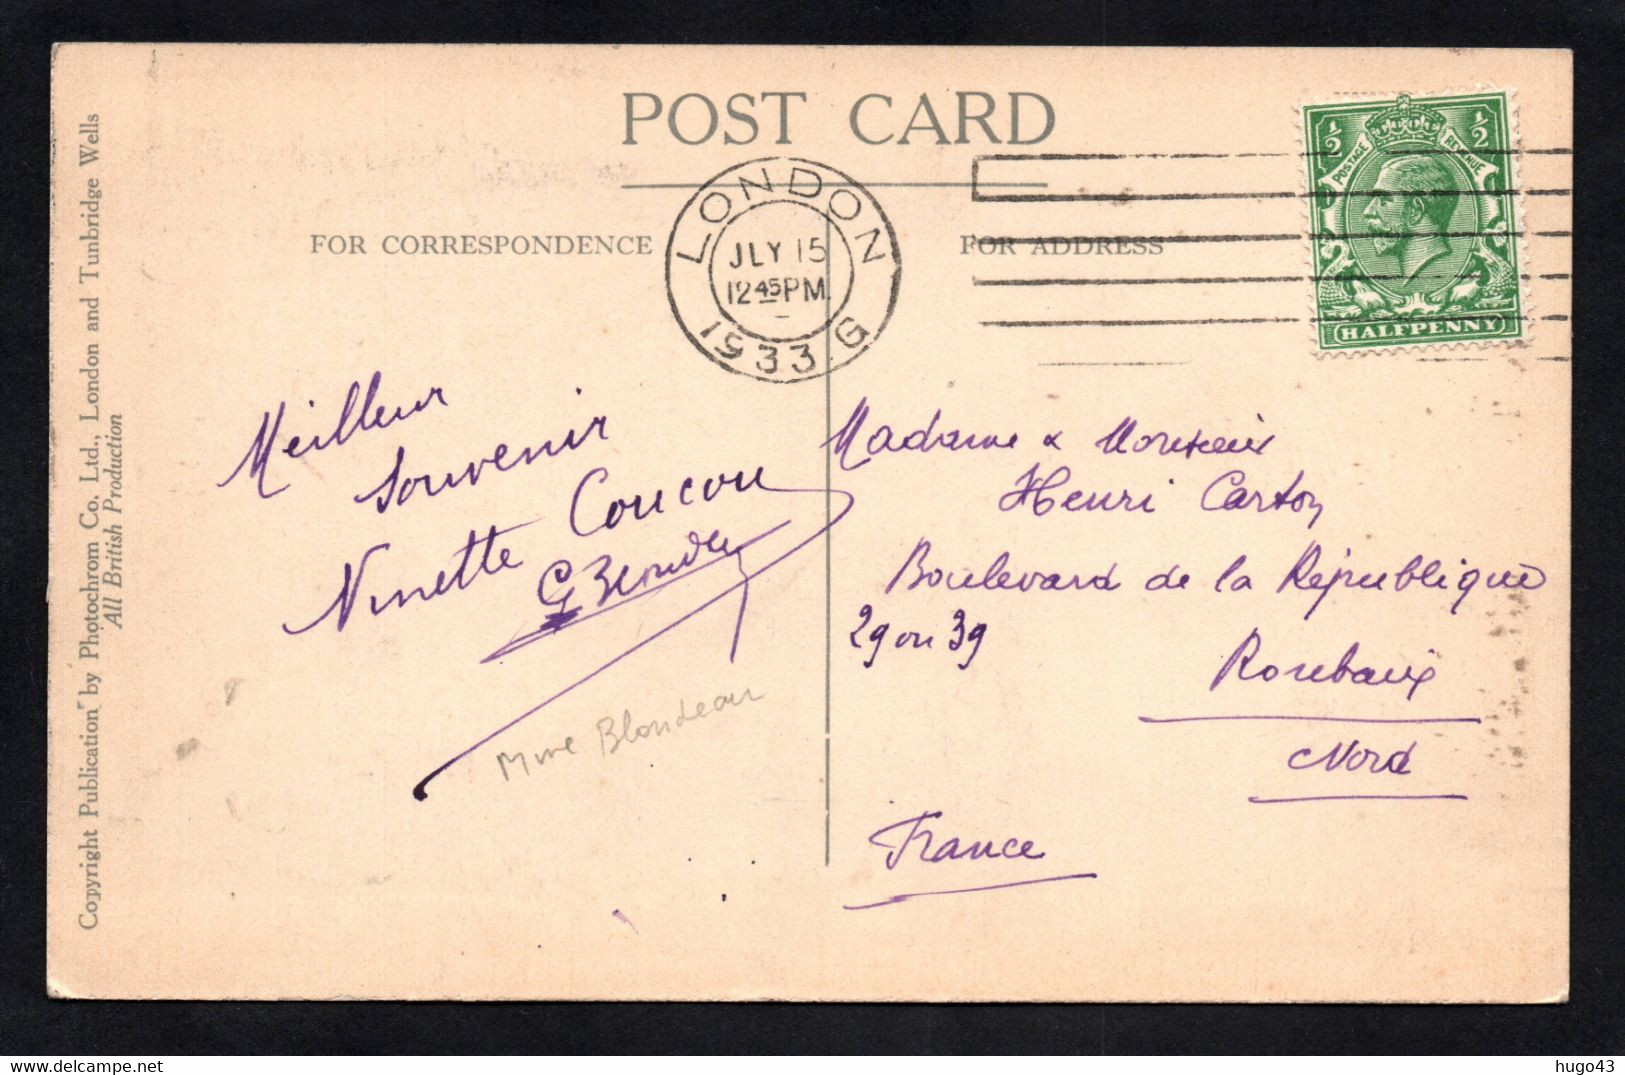 POST CARD
FOR CORRESPONDENCE
FOR ADDRESS
LONDON
JLY 15
12 45 PM
1933 G
½ ½
POSTAGE REVENUE
HALFPENNY
Copyright Publication by Photochrom Co. Ltd., London and Tunbridge Wells
All British Production
Meilleur
souvenir
Ninette Coucou
G Blondeau
Mme Blondeau
Madame & Monsieur
Henri Carton
Boulevard de la République
29 ou 39
Roubaix
Nord
France
hugo43